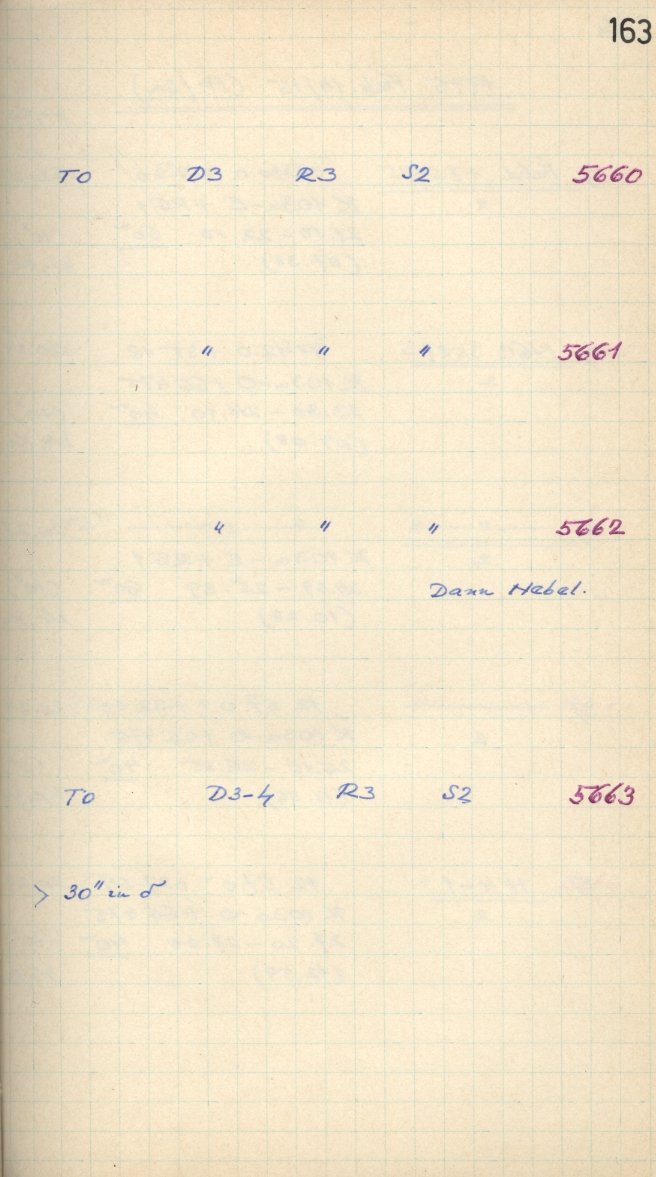 163
TO D3 R3 S2 5660
" " " 5661
" " " 5662
Dann Nebel.
TO D3-4 R3 S2 5663
> 30" in δ